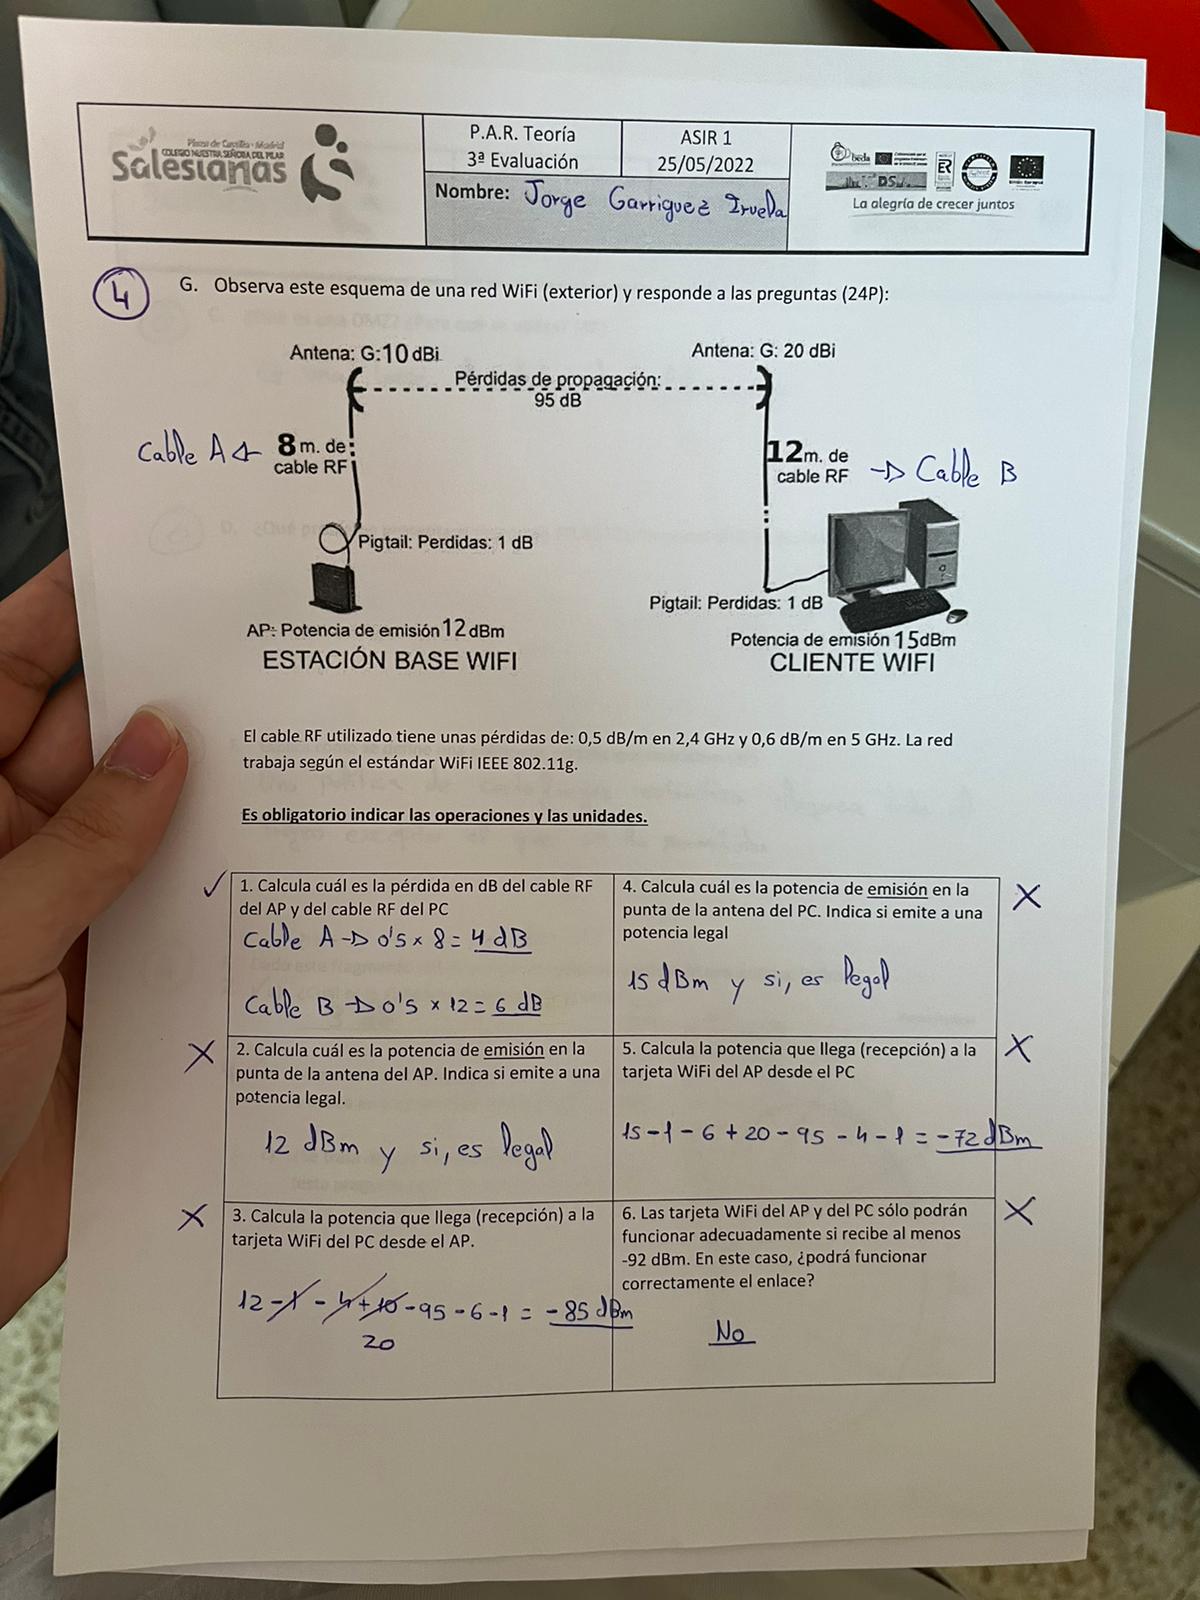 Plaza de Castilla - Madrid
COLEGIO NUESTRA SEÑORA DEL PILAR
Salesianas
P.A.R. Teoría
3ª Evaluación
ASIR 1
25/05/2022
Nombre: Jorge Garriguez Iruela
beda
ER
DS
La alegría de crecer juntos
4
G. Observa este esquema de una red WiFi (exterior) y responde a las preguntas (24P):
Antena: G:10 dBi
Antena: G: 20 dBi
Pérdidas de propagación:
95 dB
Cable A
8m. de
cable RF
12m. de
cable RF
Cable B
Pigtail: Perdidas: 1 dB
Pigtail: Perdidas: 1 dB
AP: Potencia de emisión 12 dBm
ESTACIÓN BASE WIFI
Potencia de emisión 15dBm
CLIENTE WIFI
El cable RF utilizado tiene unas pérdidas de: 0,5 dB/m en 2,4 GHz y 0,6 dB/m en 5 GHz. La red
trabaja según el estándar WiFi IEEE 802.11g.
Es obligatorio indicar las operaciones y las unidades.
✓ 1. Calcula cuál es la pérdida en dB del cable RF
del AP y del cable RF del PC
Cable A → 0'5 x 8 = 4 dB
Cable B → 0'5 x 12 = 6 dB
X 2. Calcula cuál es la potencia de emisión en la
punta de la antena del AP. Indica si emite a una
potencia legal.
12 dBm y si, es legal
X 3. Calcula la potencia que llega (recepción) a la
tarjeta WiFi del PC desde el AP.
12 - 1 - 4 + 10 - 95 - 6 - 1 = - 85 dBm
20
4. Calcula cuál es la potencia de emisión en la X
punta de la antena del PC. Indica si emite a una
potencia legal
15 dBm y si, es legal
5. Calcula la potencia que llega (recepción) a la X
tarjeta WiFi del AP desde el PC
15 - 1 - 6 + 20 - 95 - 4 - 1 = - 72 dBm
6. Las tarjeta WiFi del AP y del PC sólo podrán X
funcionar adecuadamente si recibe al menos
-92 dBm. En este caso, ¿podrá funcionar
correctamente el enlace?
No